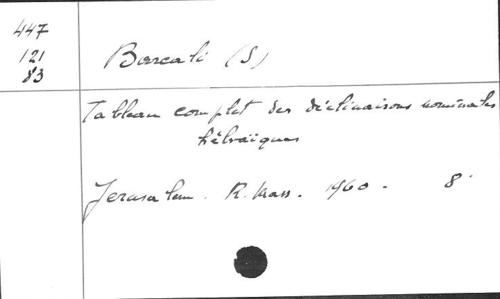 447
121
83
Barcali (S)
Tableau complet des déclinaisons nominales
hébraïques
Jerusalem. R. Mass. 1960. 8°